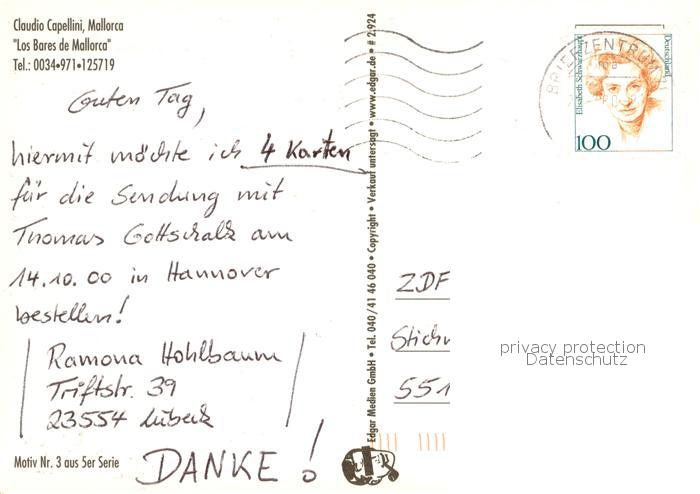 Claudio Capellini, Mallorca
"Los Bares de Mallorca"
Tel.: 0034•971•125719
Guten Tag,
hiermit möchte ich 4 Karten
für die Sendung mit
Thomas Gottschalk am
14.10.00 in Hannover
bestellen!
Ramona Hohlbaum
Triftstr. 39
23554 Lübeck
DANKE!
Motiv Nr. 3 aus 5er Serie
Edgar Medien GmbH • Tel. 040/41 46 040 • Copyright • Verkauf untersagt • www.edgar.de • # 2.924
BRIEFZENTRUM
Elisabeth Schwarzhaupt
Deutschland
100
ZDF
Stich
551
privacy protection
Datenschutz